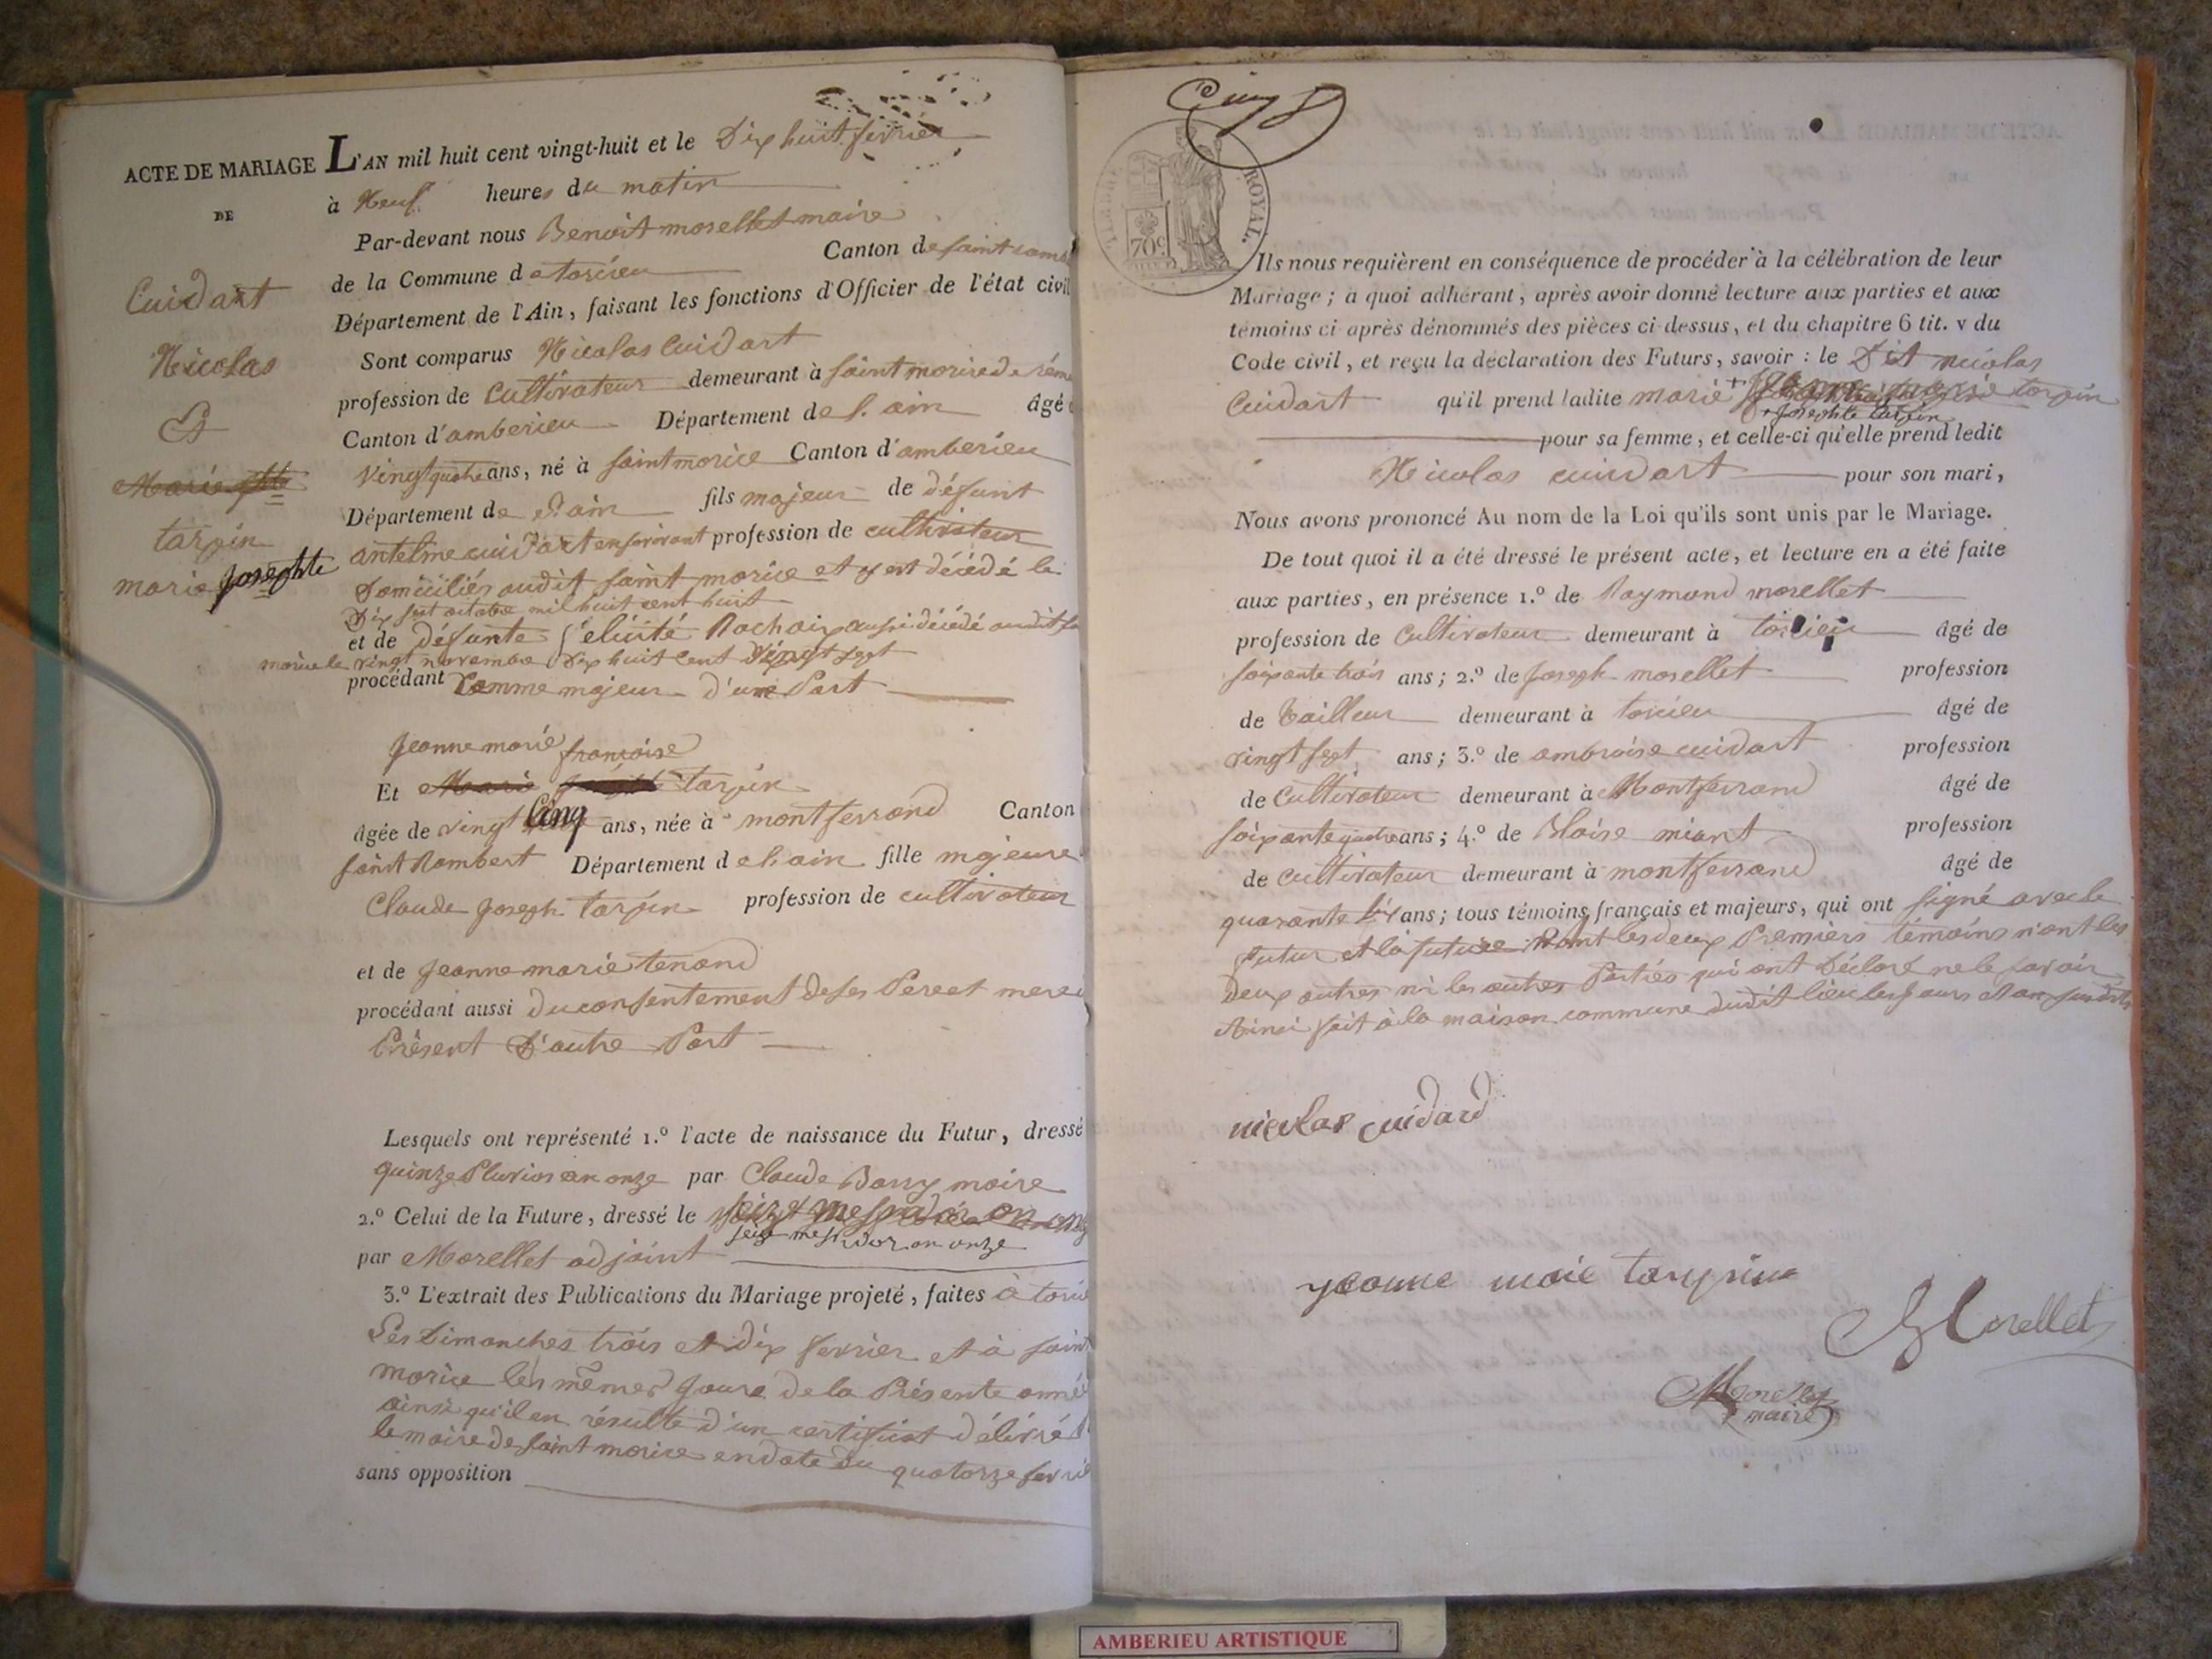 ACTE DE MARIAGE
DE
Cuidart
Nicolas
Et
tarpin
marie Josephte
L'AN mil huit cent vingt-huit et le Dix huit fevrier
à Neuf heures du matin
Par-devant nous Benoit morellet maire
de la Commune de torcieu Canton de saint ramb
Département de l'Ain, faisant les fonctions d'Officier de l'état civil
Sont comparus Nicolas Cuidart
profession de Cultivateur demeurant à saint morice de réme
Canton d'amberieu Département de l'ain âgé d
vingt quatre ans, né à saint morice Canton d'amberieu
Département de l'ain fils majeur de défunt
antelme cuidart en son vivant profession de cultivateur
Domiciliés audit saint morice et y est décédé le
Dix sept octobre mil huit cent huit
et de défunte félicité Rochaix aussi décédé audit sa
morice le vingt novembre dix huit cent vingt sept
procédant Comme majeur d'une Part
Jeanne marie françoise
Et Marie tarpin
âgée de vingt Cinq ans, née à montferrand Canton
saint Rambert Département de l'ain fille majeure
Claude Joseph tarpin profession de cultivateur
et de Jeanne marie tenand
procédant aussi du consentement de ses Pere et mere
Présent D'autre Part
Lesquels ont représenté 1.º l'acte de naissance du Futur, dressé
quinze Pluvios an onze par Claude Barry maire
2.º Celui de la Future, dressé le seize messidor an onz
seize messidor an onze
par Morellet adjoint
3.º L'extrait des Publications du Mariage projeté, faites à torcie
Les Dimanches trois et dix fevrier et à saint
morice les mêmes Jours de la Présente anné
ainsi qu'il en résulte d'un certificat délivré
le maire de saint morice en date du quatorze fevrie
sans opposition
TIMBRE ROYAL.
70 c
Ils nous requièrent en conséquence de procéder à la célébration de leur
Mariage; à quoi adhérant, après avoir donné lecture aux parties et aux
témoins ci après dénommés des pièces ci-dessus, et du chapitre 6 tit. v du
Code civil, et reçu la déclaration des Futurs, savoir : le Dit nicolas
Cuidart qu'il prend ladite marie tarpin
+ Josephte tarpin
pour sa femme, et celle-ci qu'elle prend ledit
Nicolas cuidart pour son mari,
Nous avons prononcé Au nom de la Loi qu'ils sont unis par le Mariage.
De tout quoi il a été dressé le présent acte, et lecture en a été faite
aux parties, en présence 1.º de Raymond morellet
profession de Cultivateur demeurant à torcieu âgé de
soixante trois ans; 2.º de Joseph morellet profession
de tailleur demeurant à torcieu âgé de
vingt sept ans; 3.º de ambroise cuidart profession
de Cultivateur demeurant à Montferrand âgé de
soixante quatre ans; 4.º de Blaise miant profession
de cultivateur demeurant à montferrand âgé de
quarante six ans; tous témoins français et majeurs, qui ont signé avec le
futur et la future Dont les deux Premiers témoins n'ont les
Deux autres ni les autres Parties qui ont Déclaré ne le savoir
Ainsi fait à la maison commune dudit lieu les Jours et an susdits
nicolas cuidard
Morellet
Morellet
maire
AMBERIEU ARTISTIQUE